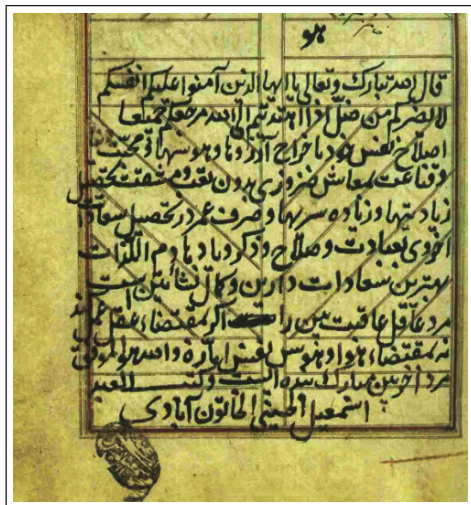 هو
قال الله تبارک وتعالی یا ایها الذین آمنوا علیکم انفسکم
لا یضرکم من ضل اذا اهتدیتم الی الله مرجعکم جمیعا
اصلاح نفس خود با خراج آرزوها وهوسها ومحبت
وقناعت بمعاش ضروری بدون تعب ومشقت تحصیل
زیادتیها وزیاده سریها وصرف عمر در تحصیل سعادات
اخروی بعبادت وصلاح وذکر ویاد هادم اللذات
بهترین سعادات دارین وکمال نشأتین است
مرد عاقل عاقبت بین را اگر بمقتضاء عقل عمل کند
نه بمقتضاء هوا وهوس نفس اماره والله هو الموفق
مرد آخربین مبارک بنده ایست وکتب العبد
اسمعیل الحسینی الخاتون آبادی